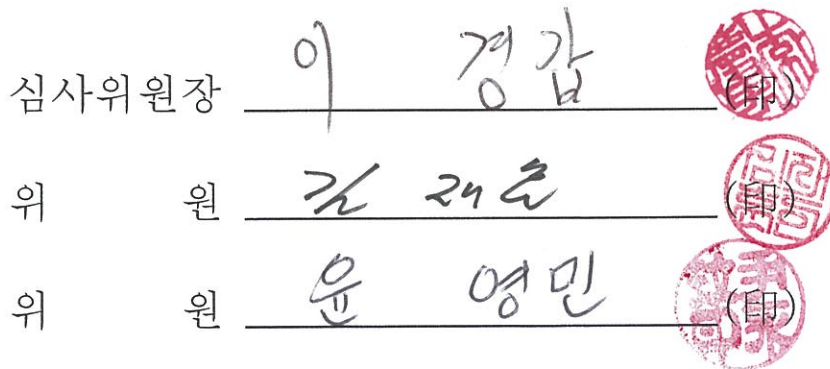 심사위원장 이 경갑 (印)
위 원 (印)
위 원 윤 영민 (印)